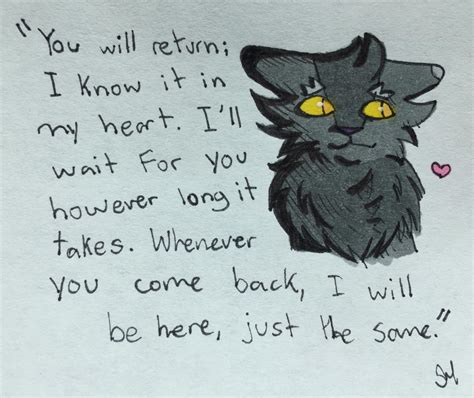 "You will return;
I know it in
my heart. I'll
wait for you
however long it
takes. Whenever
you come back, I will
be here, just the same."